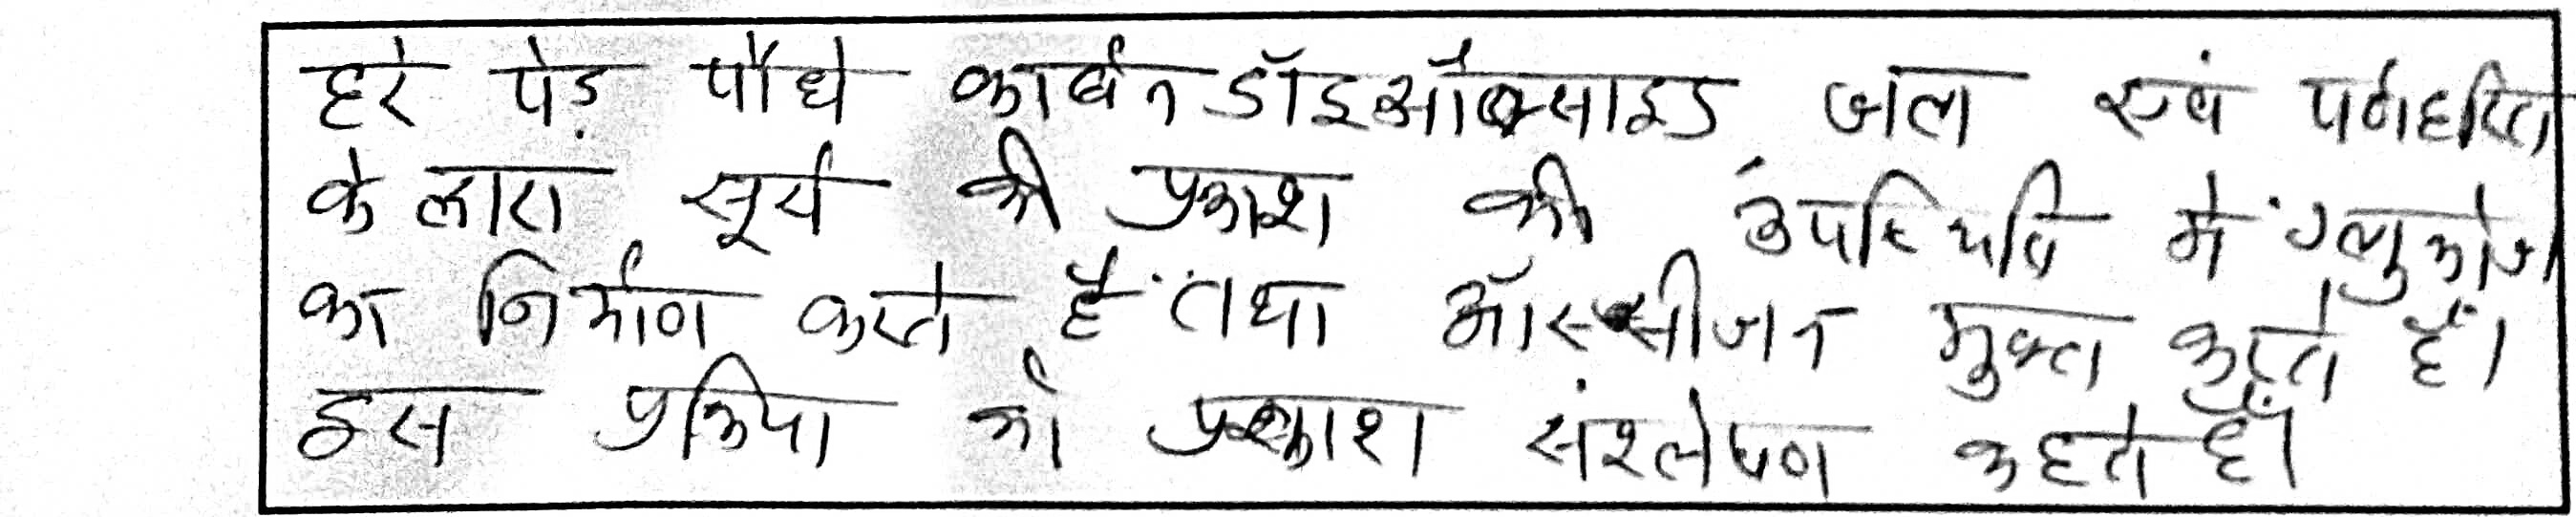 हरे पेड़ पौधे कार्बन डॉइऑक्साइड जल एवं पर्णहरित
के द्वारा सूर्य की प्रकाश की उपस्थिति में ग्लुकोज
का निर्माण करते हैं तथा ऑक्सीजन मुक्त करते हैं।
इस प्रक्रिया को प्रकाश संश्लेषण कहते हैं।